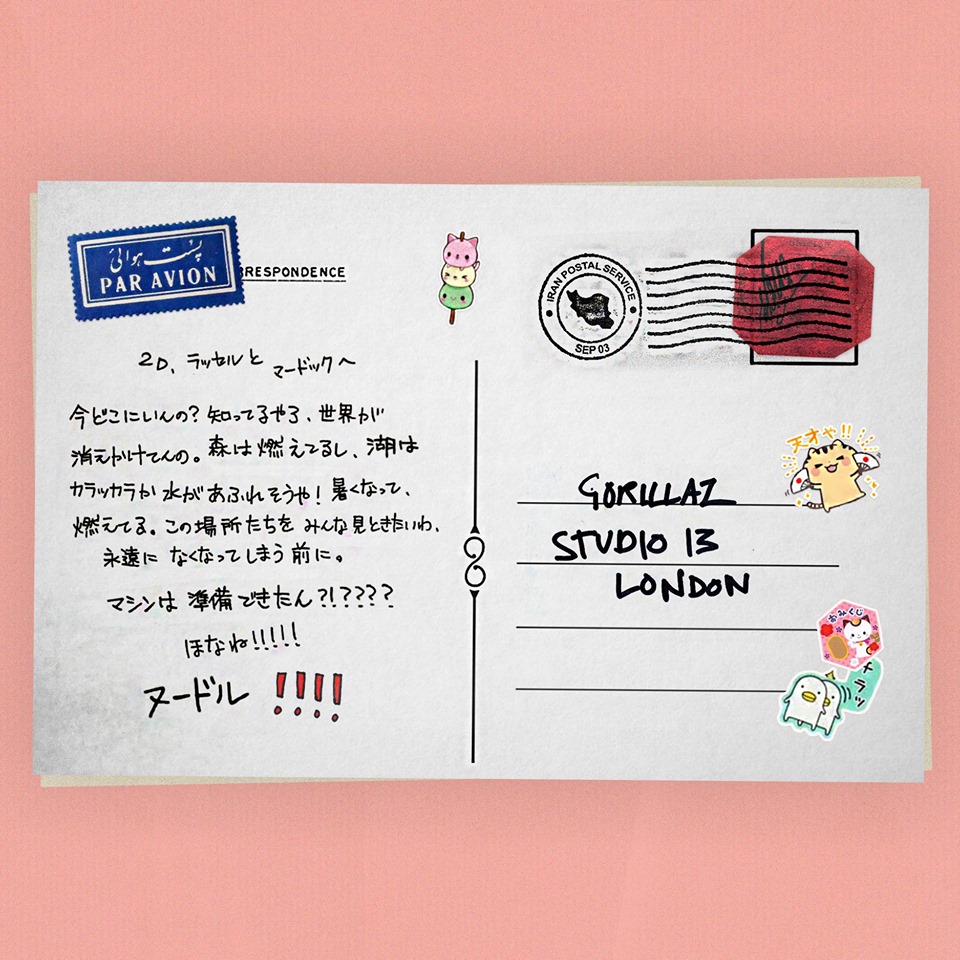 پست هوائی
PAR AVION
RRESPONDENCE
2D、ラッセルと マードックへ
今どこにいんの？知ってるやろ、世界が
消えかけてんの。森は燃えてるし、湖は
カラッカラか 水があふれそうや！暑くなって、
燃えてる。この場所たちを みんな見ときたいわ、
永遠に なくなってしまう前に。
マシンは 準備できたん?!????
ほなね!!!!!
ヌードル !!!!
IRAN POSTAL SERVICE
SEP 03
天才や!!
GORILLAZ
STUDIO 13
LONDON
おみくじ
チラッ